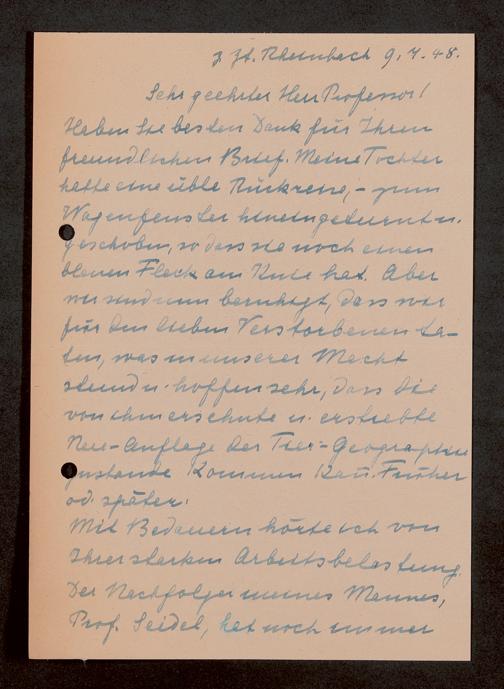 z. Zt. Rheinbach 9.7.48.
Sehr geehrter Herr Professor!
Haben Sie besten Dank für Ihren
freundlichen Brief. Meine Tochter
hatte eine üble Rückreise, - zum
Wagenfenster hineingeturnt u.
geschoben, so dass sie noch einen
blauen Fleck am Knie hat. Aber
wir sind nun beruhigt, dass wir
für den lieben Verstorbenen ta-
ten, was in unserer Macht
stand u. hoffen sehr, dass die
von ihm ersehnte u. erstrebte
Neu-Auflage der Tier-Geographie
zustande kommen kann. Früher
od. später.
Mit Bedauern hörte ich von
Ihrer starken Arbeitsbelastung.
Der Nachfolger meines Mannes,
Prof. Seidel, hat noch immer